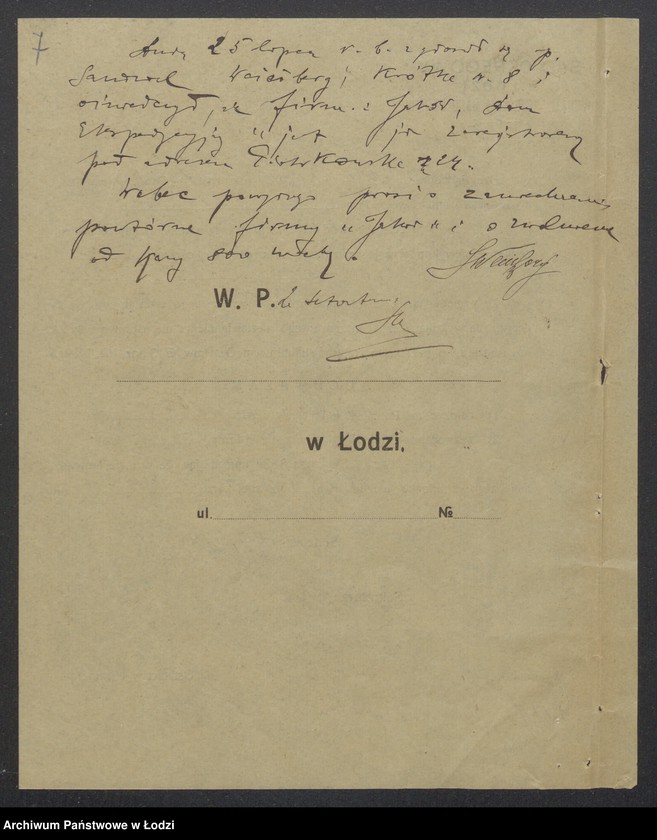 7
Dnia 25 lipca r. b. zgłosił się p.
Samuel Weinberg, Krótka n. 8 i
oświadczył, że firma: Jakor, Dom
Ekspedycyjny" jest już zarejestrowany
pod adresem Piotrkowska 24.
Wobec powyższego prosi o
powtórne firmy "Jakor" i o zwolnienie
od kary 800 marek.
SWeinberg
W. P.
w Łodzi,
ul. №
Archiwum Państwowe w Łodzi